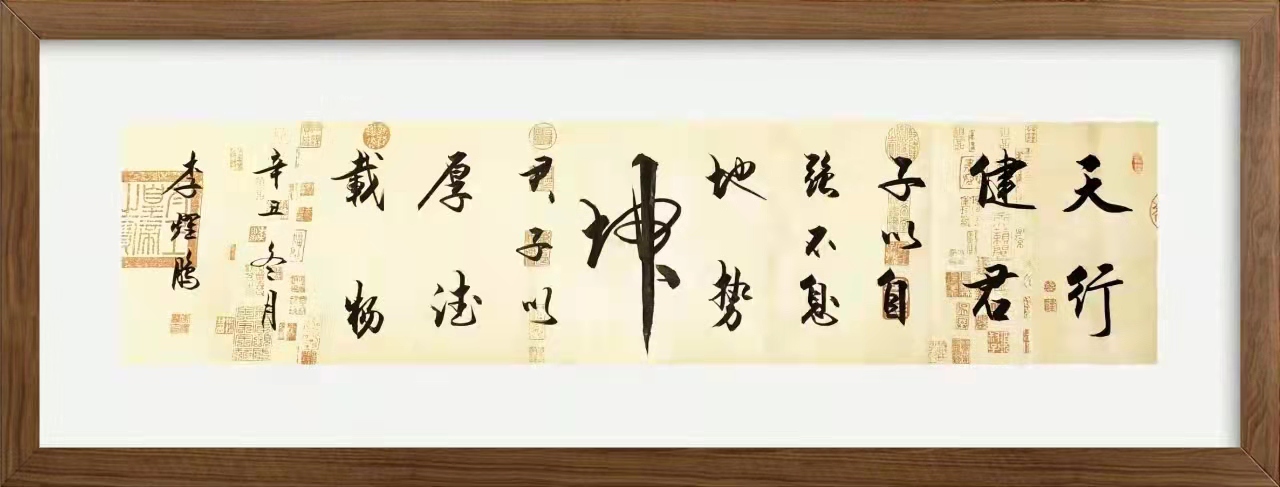 天行
健君
子以自
强不息
地势
坤
君子以
厚德
载物
辛丑冬月
李煜鹏